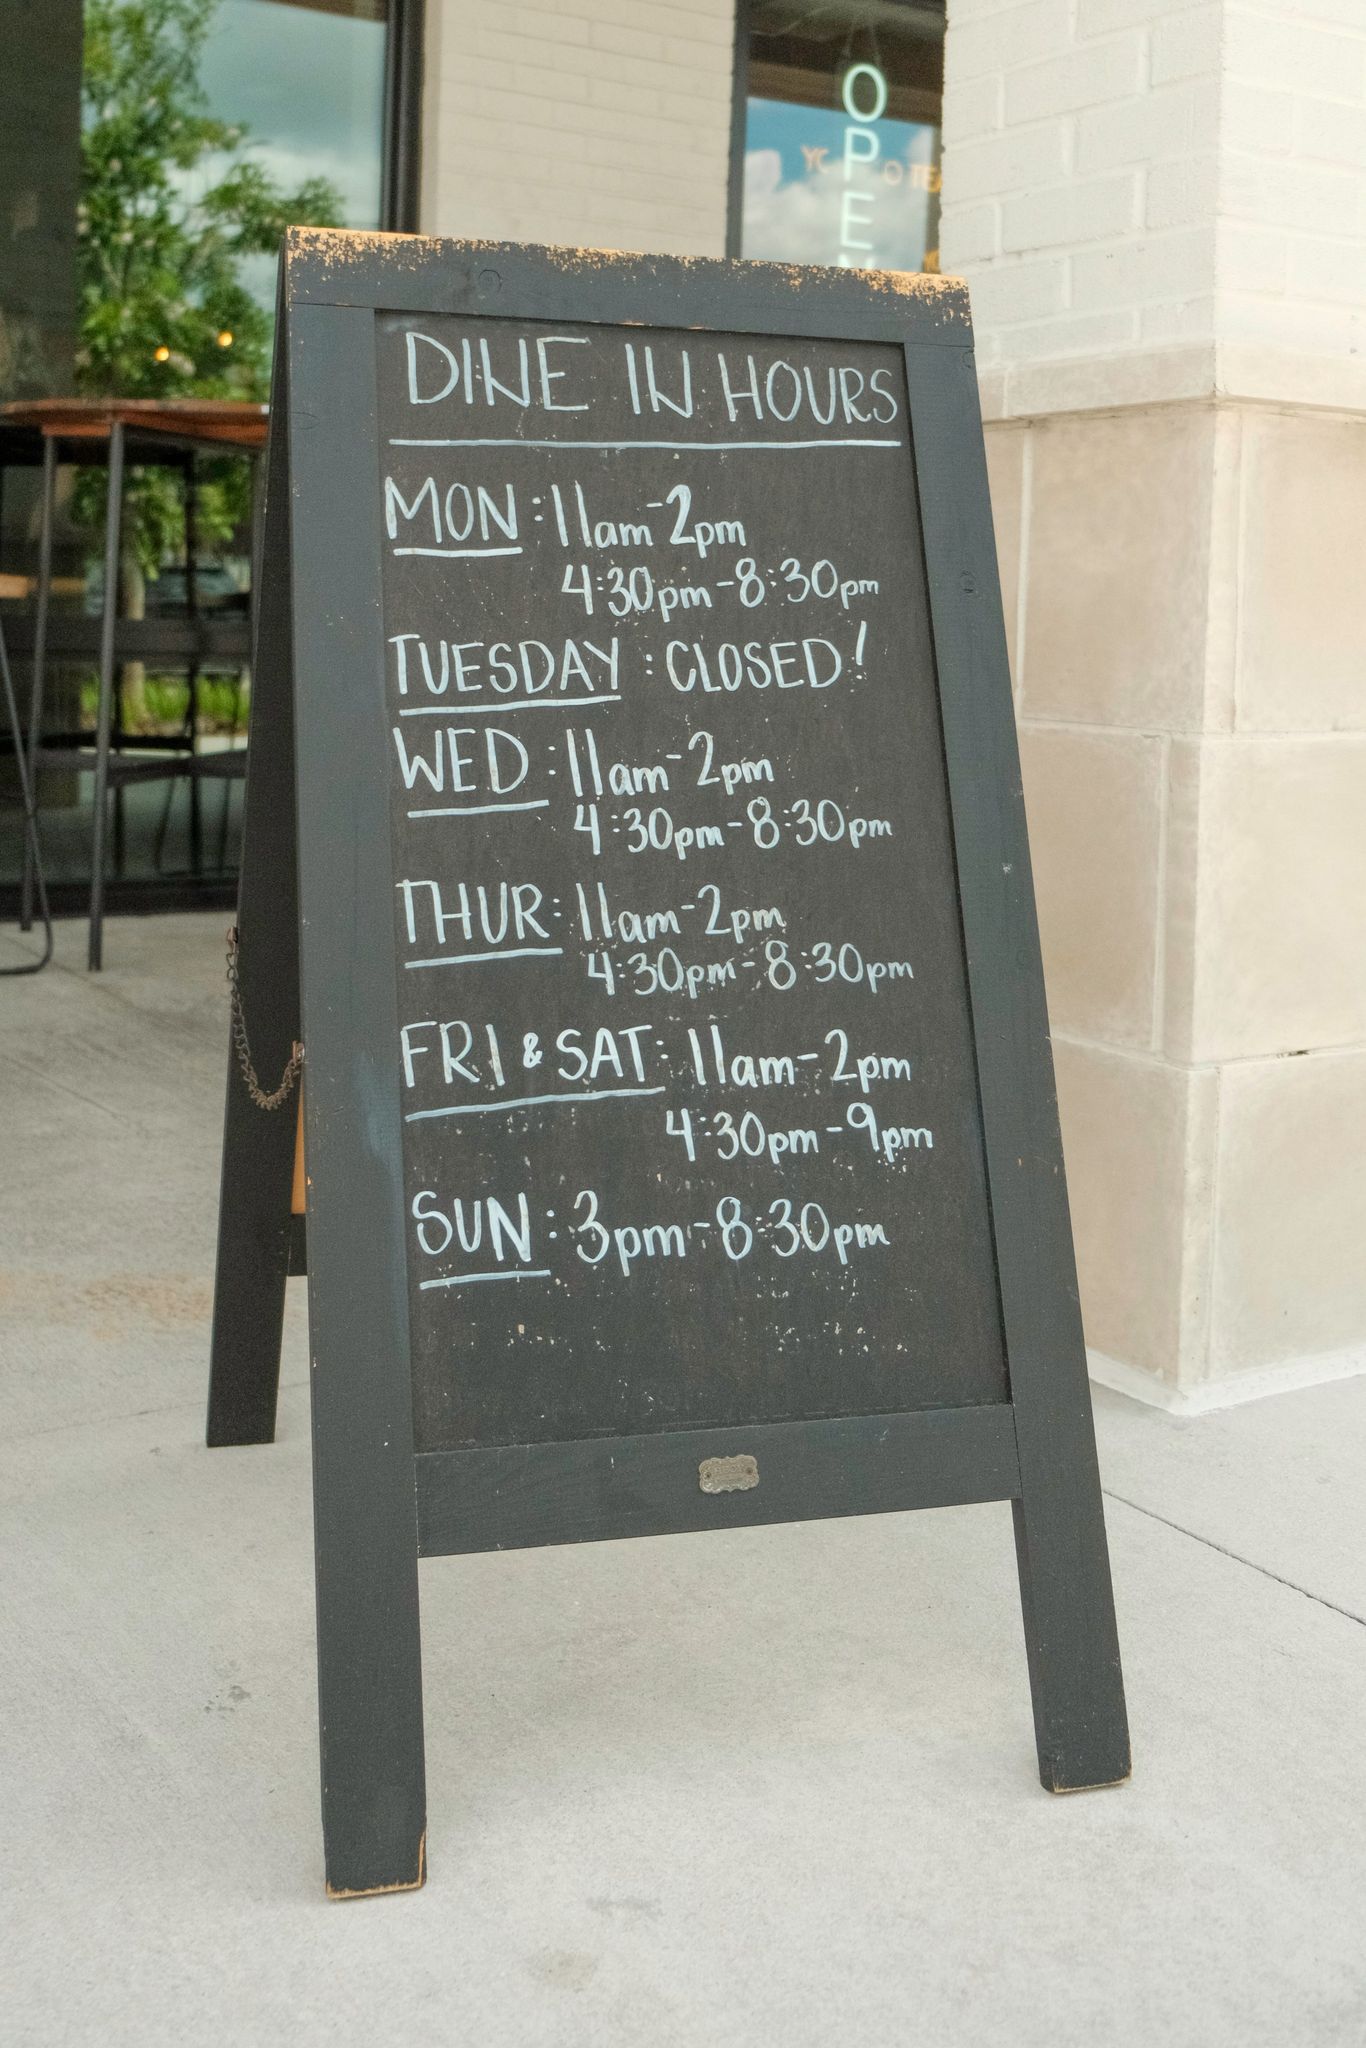 OPEN
DINE IN HOURS
MON: 11am-2pm
4:30pm-8:30pm
TUESDAY: CLOSED!
WED: 11am-2pm
4:30pm-8:30pm
THUR: 11am-2pm
4:30pm-8:30pm
FRI & SAT: 11am-2pm
4:30pm-9pm
SUN: 3pm-8:30pm